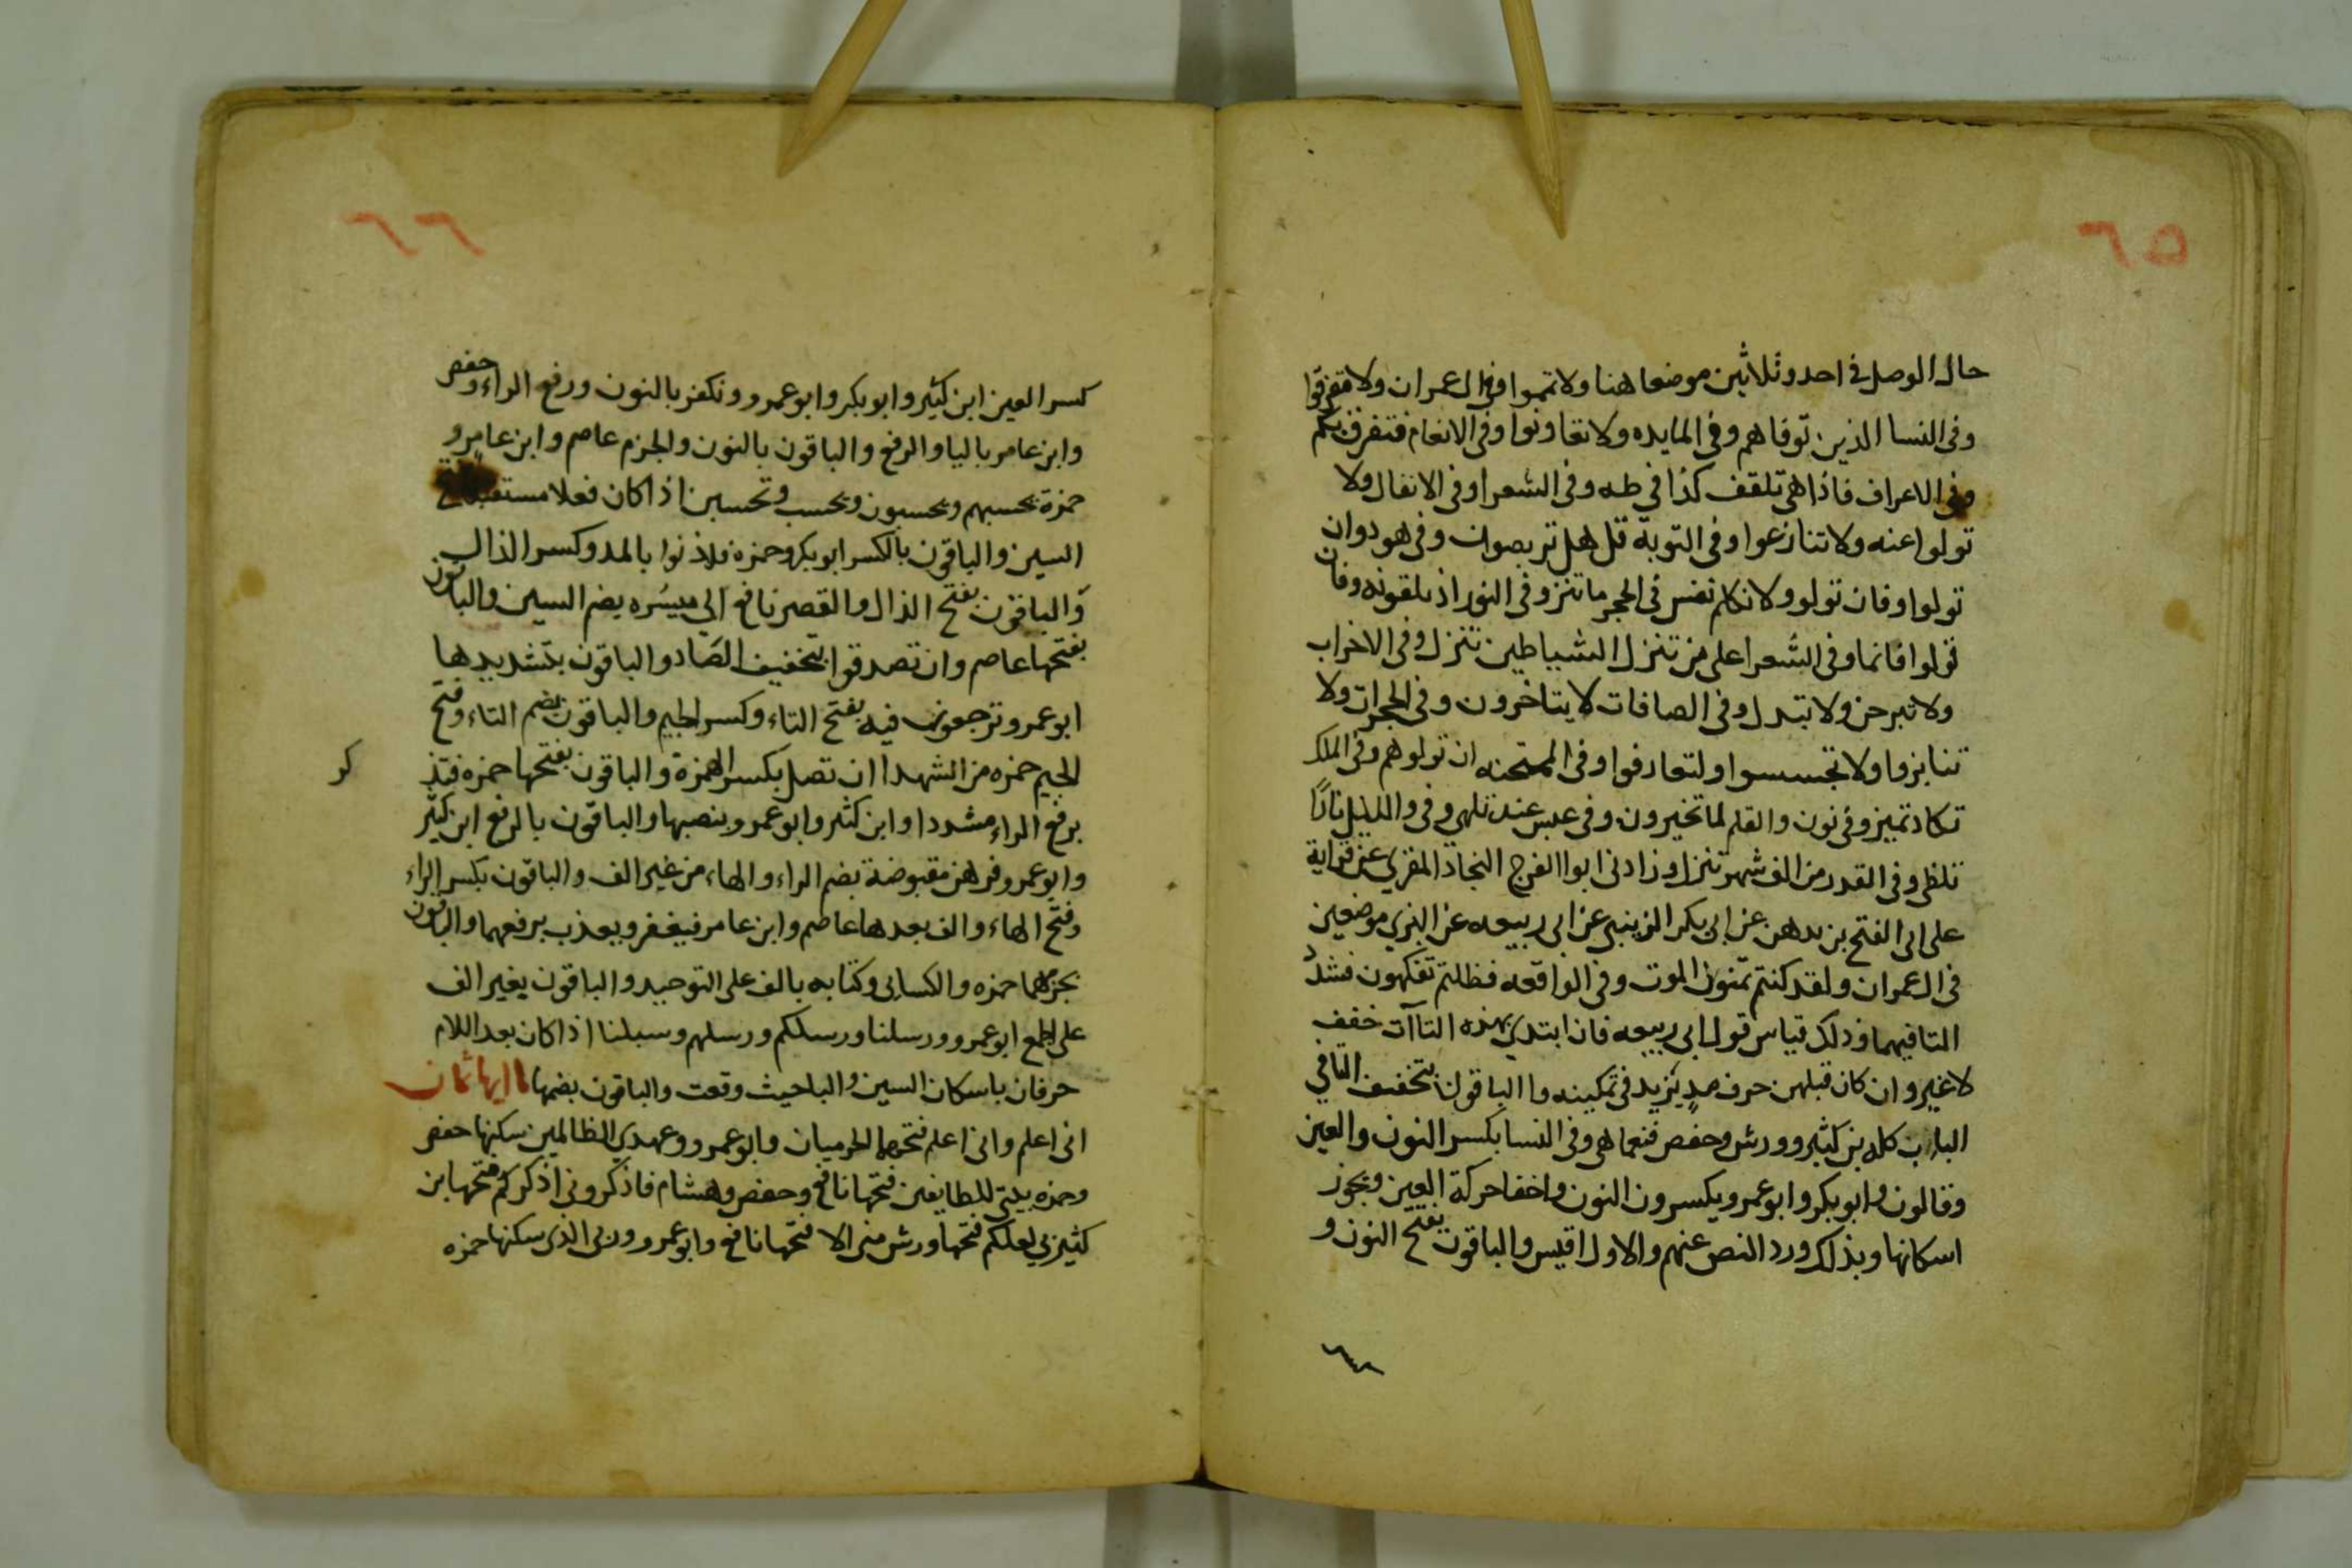 ٦٥
حال الوصل في احد وثلاثين موضعا هنا ولا تمموا وفي ال عمران ولا تفرقوا
وفي النسا الذين توفاهم وفي المايده ولا تعاونوا وفي الانعام فتفرق بكم
وفي الاعراف فاذا هي تلقف كذا في طه وفي الشعرا وفي الانفال ولا
تولوا عنه ولا تنازعوا وفي التوبة قل هل تربصون وفي هود وان
تولوا وفان تولو ولا تكلم نفس في الحجر ما تنز وفي النور اذ تلقونه وفان
تولوا فانما وفي الشعرا على من تنزل الشياطين تنزل وفي الاخراب
ولا تبرجن ولا تبتدل وفي الصافات لا يتاخرون وفي الحجرات ولا
تنابزوا ولا تجسسوا ولتعارفوا وفي الممتحنه ان تولوهم وفي الملك
تكاد تميز وفي نون والقلم لما تخيرون وفي عبس عنه تلهى وفي والليل نارًا
تلظى وفي القدر من الف شهر تنزل وزادني ابوا الفرج النجاد المقري عن قراية
على ابي الفتح بن بدهن عن ابي بكر الزينبي عن ابي ربيعه عن البزي موضعين
في ال عمران ولقد كنتم تمنون الموت وفي الواقعه فظلتم تفكهون فشدد
التا فيهما وذلك قياس قول ابي ربيعه فان ابتدي بهذه التاآت خفف
لا غير وان كان قبلهن حرف مدٍ يزيد في تمكينه وا الباقون بتخفيف التا في
الباب كله بن كثير وورش وحفص فنعما هي وفي النسا بكسر النون والعين
وقالون وابو بكر وابو عمرو يكسرون النون واخفا حركة العين ويجوز
اسكانها وبذلك ورد النص عنهم والاول اقيس والباقون بفتح النون و
٦٦
كسر العين ابن كثير وابو بكر وابو عمرو ونكفر بالنون ورفع الراء وحفص
وابن عامر باليا والرفع والباقون بالنون والجزم عاصم وابن عامر و
حمزة يحسبهم ويحسبون ويحسب وتحسبن اذا كان فعلا مستقبلا
السين والباقون بالكسر ابو بكر وحمزه فلاذنوا بالمد وكسر الذال
والباقون بفتح الذال والقصر نافع الي ميسُره بضم السين والباقون
بفتحها عاصم وان تصدقوا بتخفيف الصاد والباقون بتشديدها
ابو عمرو ترجعون فيه بفتح التاء وكسر الجيم والباقون بضم التاء وفتح
الجيم حمزه من الشهدا ان تصل بكسر الهمزة والباقون بفتحها حمزه فتذ
كر
برفع الراء مشددا وابن كثير وابو عمرو بنصبها والباقون بالرفع ابن كثير
وابو عمرو فرهن مقبوضة بضم الراء والهاء من غير الف والباقون بكسر الراء
وفتح الهاء والف بعدها عاصم وابن عامر فيغفر ويعذب برفعهما والباقون
بجزمهما حمزه والكسايى وكتابه بالف على التوحيد والباقون بغير الف
على الجمع ابو عمرو ورسلنا ورسلكم ورسلهم وسبلنا اذا كان بعد اللام
حرفان باسكان السين والبا حيث وقعت والباقون بضمها ياايها ثمان
اني اعلم واني اعلم فتحهما الحرميان وابو عمرو وعهدي الظالمين سكنها حفص
وحمزه بيتي للطايفين فتحها نافع وحفص وهشام فاذكروني اذكركم فتحها ابن
كثير بي لعلكم فتحها ورش مني الا فتحها نافع وابو عمرو ربي الذي سكنها حمزه